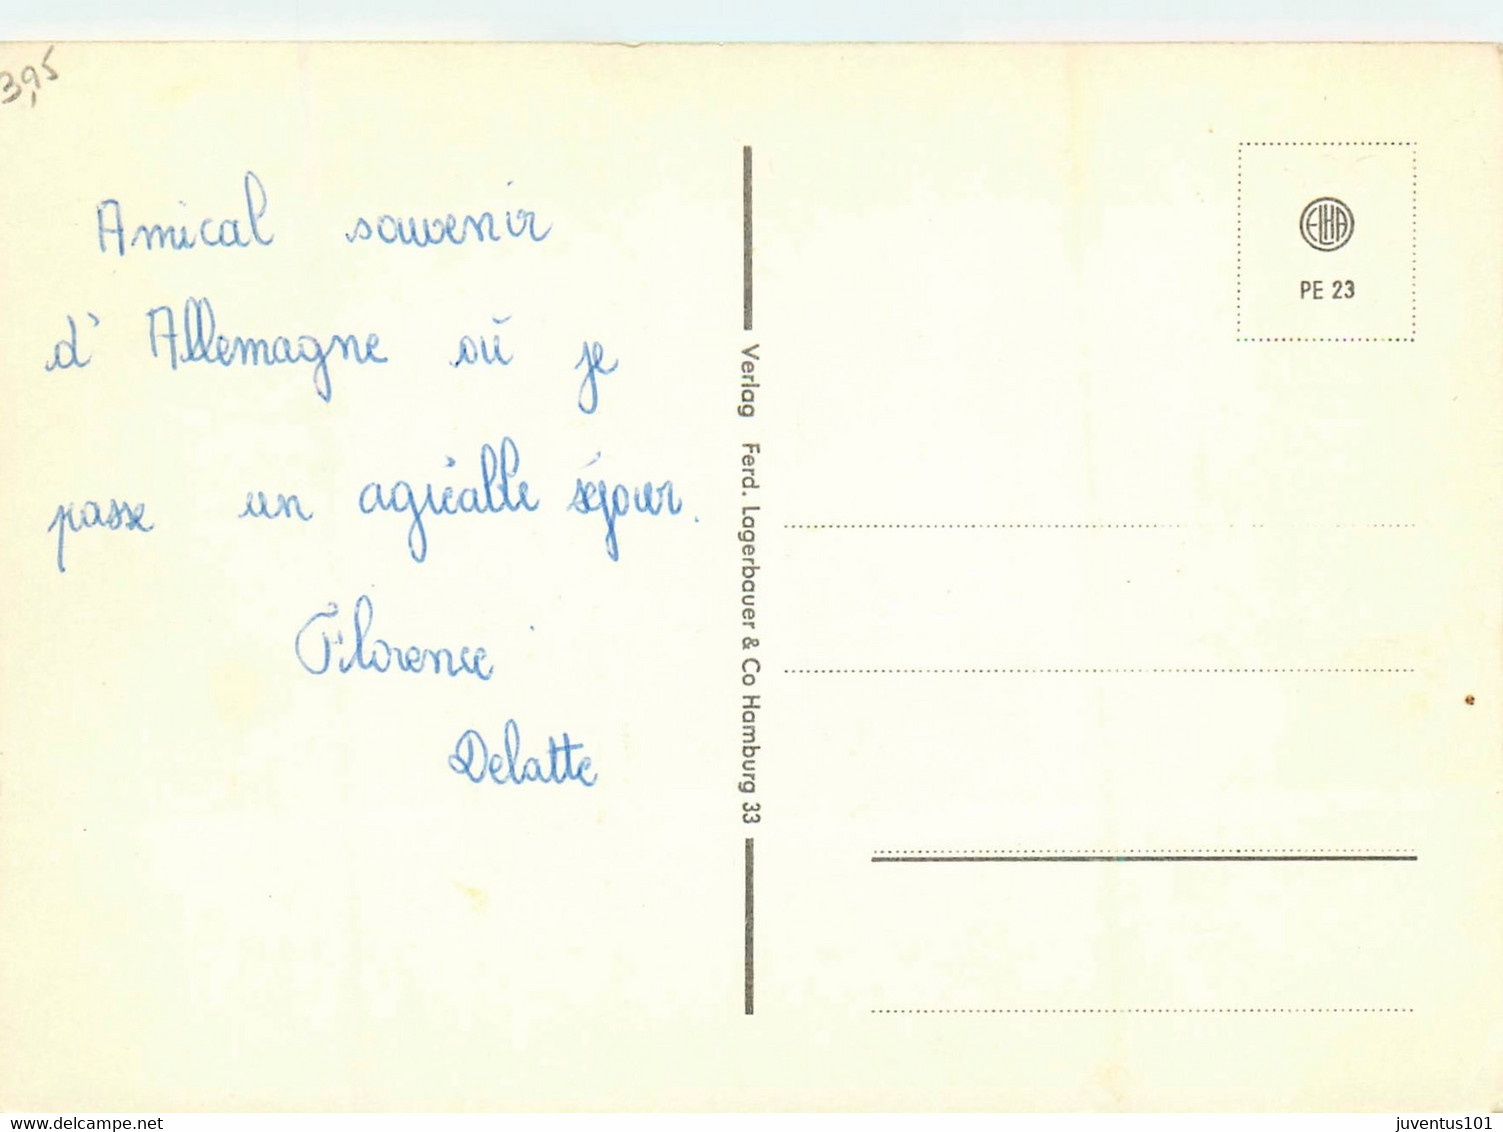 3,95
Amical souvenir
d'Allemagne où je
passe un agréable séjour.
Florence
Delatte
Verlag Ferd. Lagerbauer & Co Hamburg 33
ELHA
PE 23
www.delcampe.net
juventus101